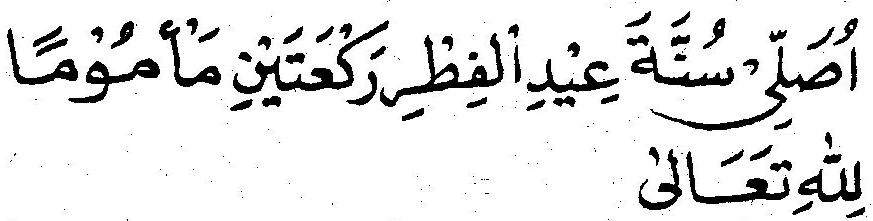 اُصَلِّىْ سُنَّةَ عِيْدِ الْفِطْرِ رَكْعَتَيْنِ مَأْمُوْمًا
لِلّٰهِ تَعَالٰى